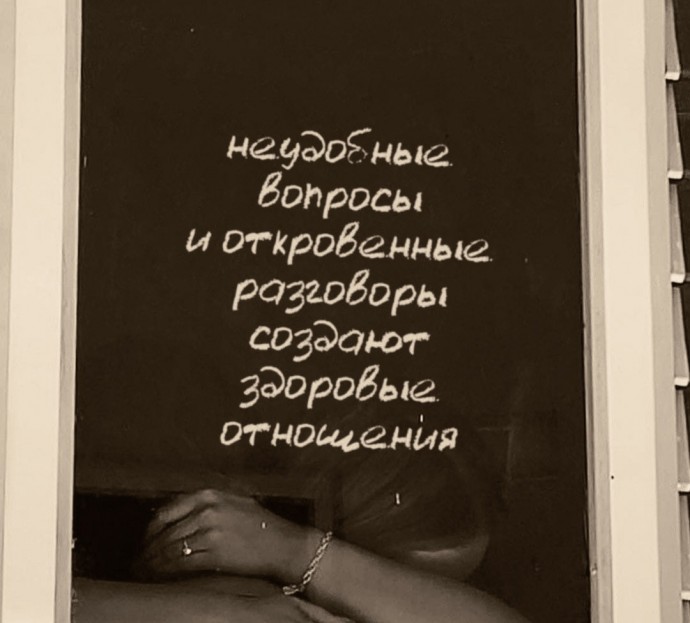 неудобные
вопросы
и откровенные
разговоры
создают
здоровые
отношения